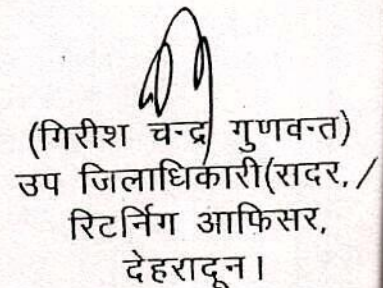 (गिरीश चन्द्र गुणवन्त)
उप जिलाधिकारी(सदर,/
रिटर्निग आफिसर,
देहरादून।